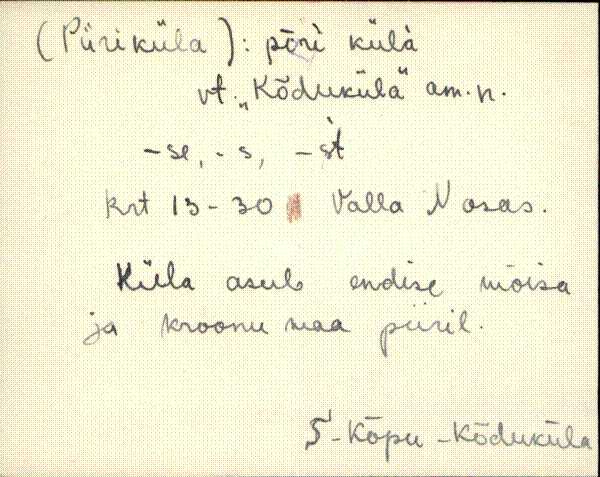 (Piiriküla): pīri külä
vt. „Kõduküla" am.n.
-se, -s, -st
krt 13-30 Valla N osas.
Küla asub endise mõisa
ja kroonu maa piiril.
S-Kõpu -Kõduküla